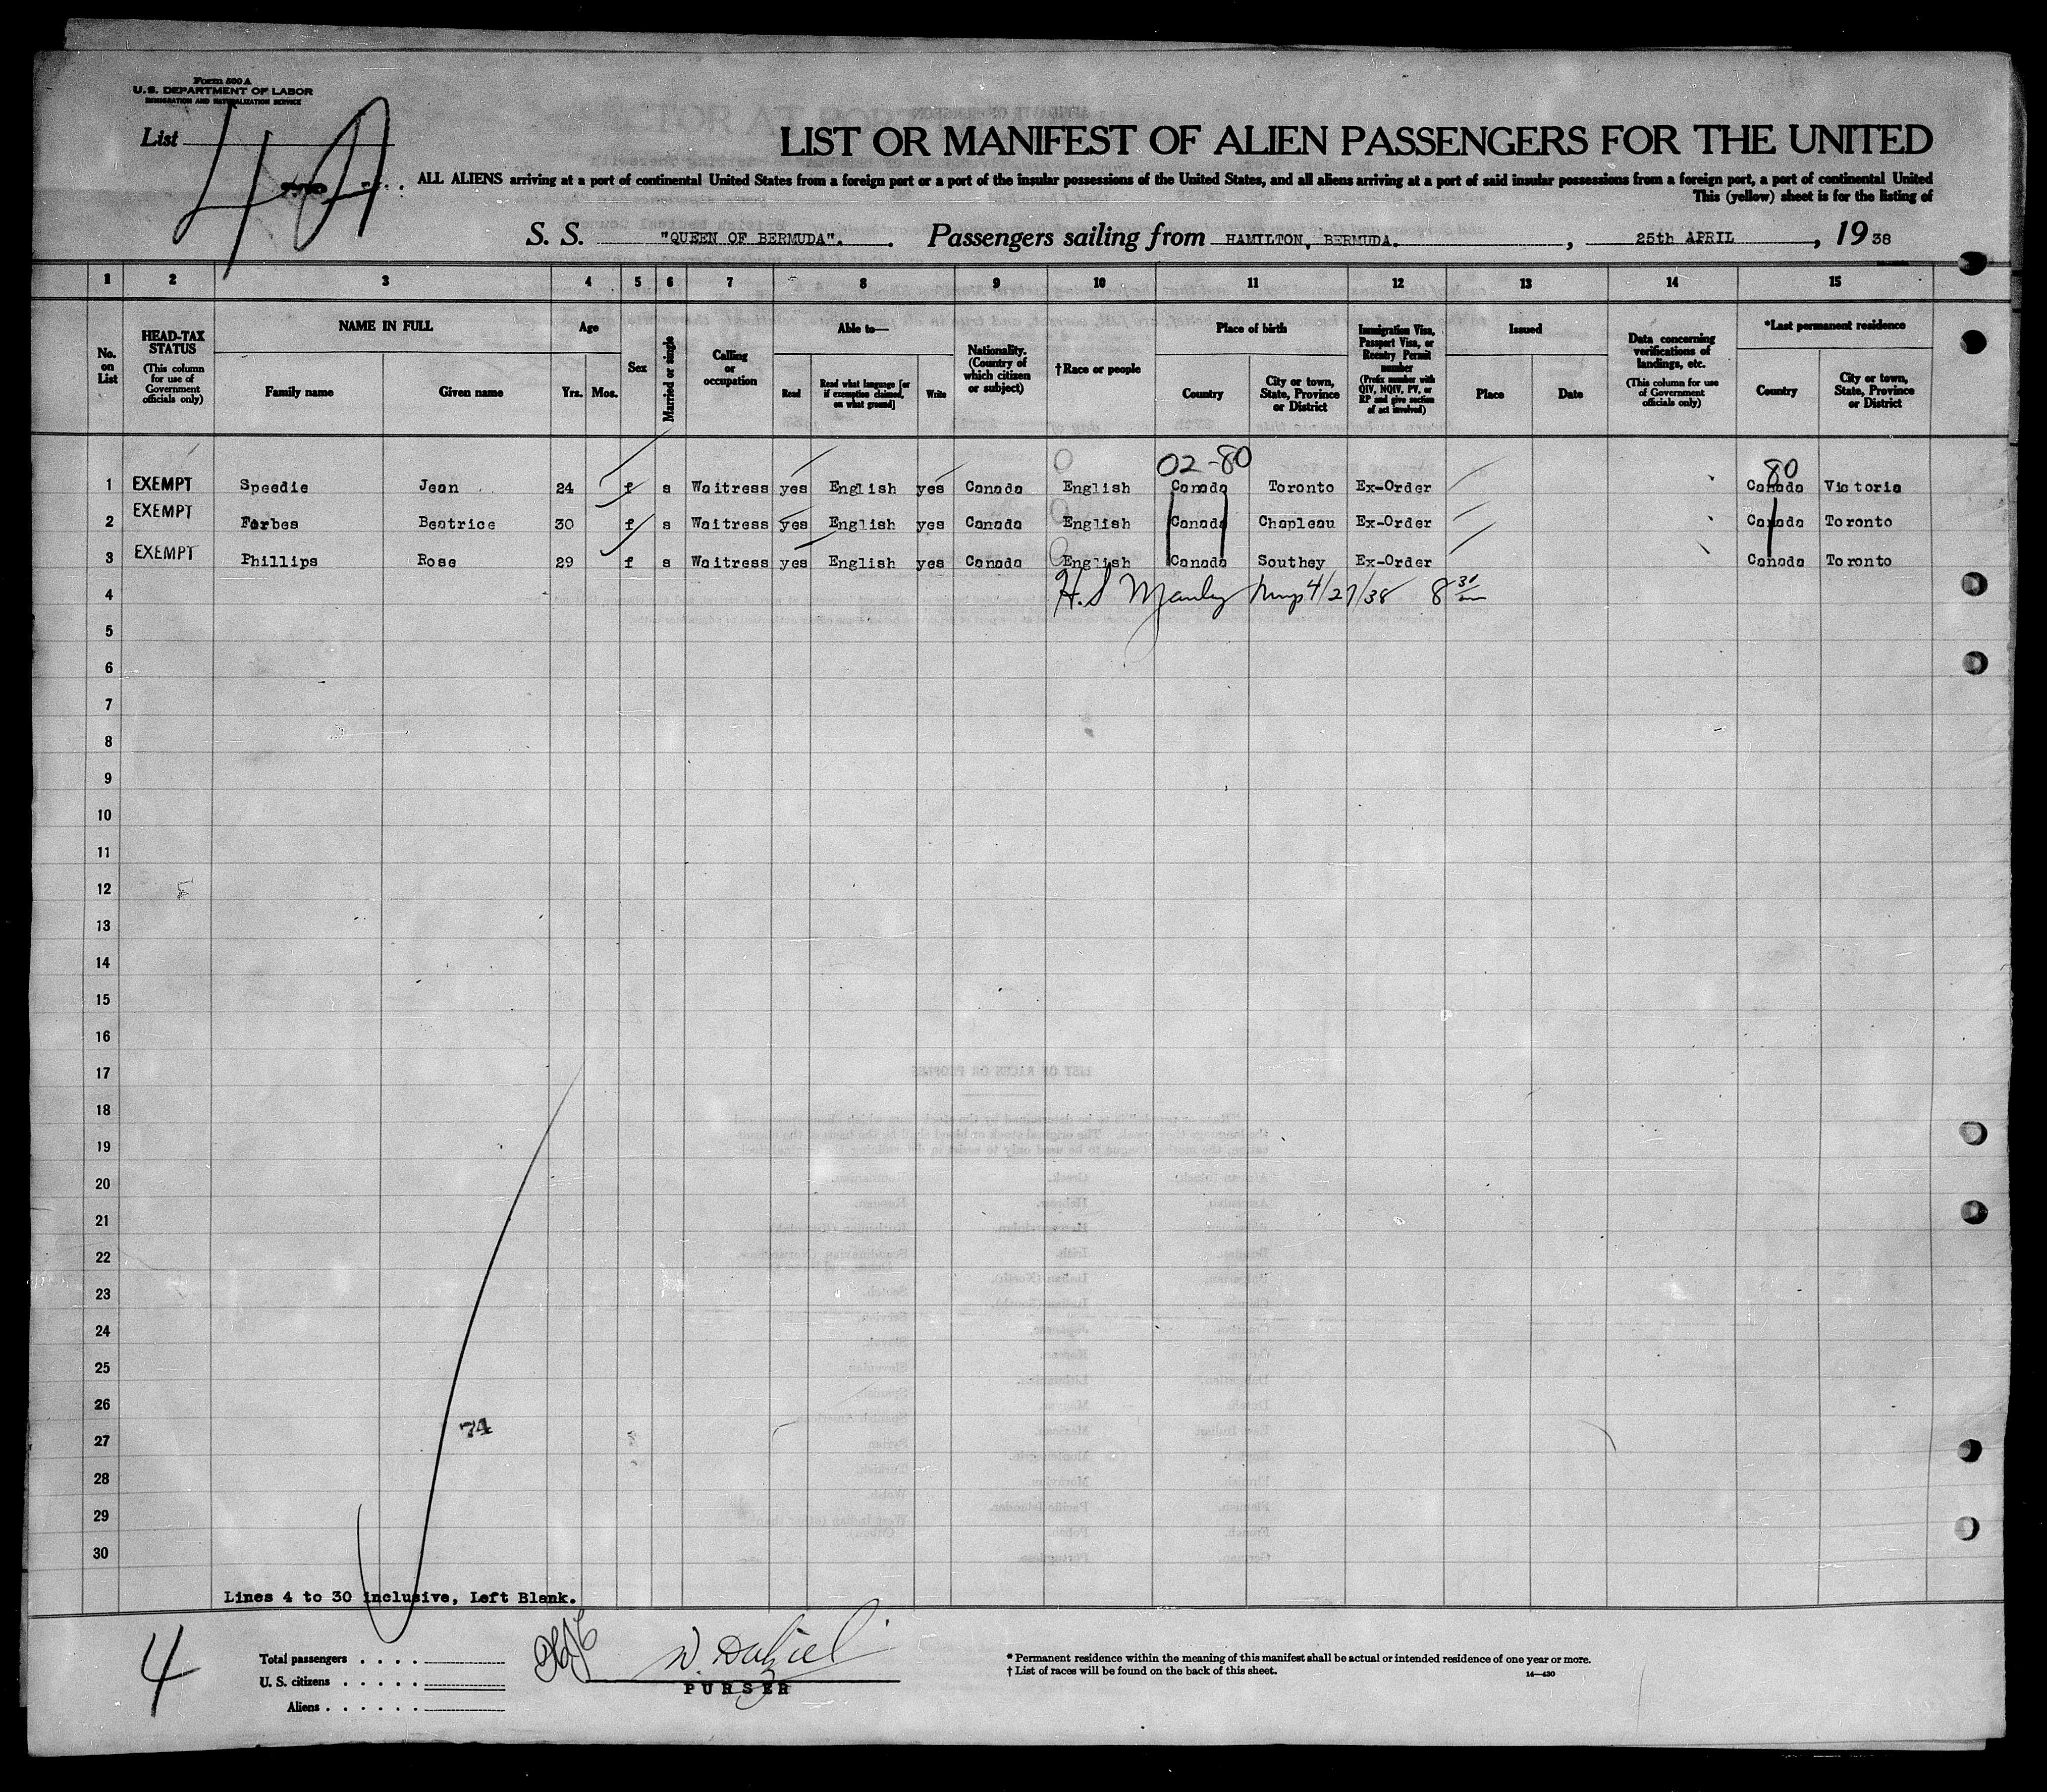 Form 500 A
U. S. DEPARTMENT OF LABOR
IMMIGRATION AND NATURALIZATION SERVICE
List 4A
LIST OR MANIFEST OF ALIEN PASSENGERS FOR THE UNITED
ALL ALIENS arriving at a port of continental United States from a foreign port or a port of the insular possessions of the United States, and all aliens arriving at a port of said insular possessions from a foreign port, a port of continental United
This (yellow) sheet is for the listing of
S. S. "QUEEN OF BERMUDA". Passengers sailing from HAMILTON, BERMUDA. , 25th APRIL , 1938
1 2 3 4 5 6 7 8 9 10 11 12 13 14 15
No. on List
HEAD-TAX STATUS (This column for use of Government officials only)
NAME IN FULL
Family name
Given name
Age
Yrs. Mos.
Sex
Married or single
Calling or occupation
Able to—
Read
Read what language [or if exemption claimed, on what ground]
Write
Nationality. (Country of which citizen or subject)
†Race or people
Place of birth
Country
City or town, State, Province or District
Immigration Visa, Passport Visa, or Reentry Permit number (Prefix number with QIV, NQIV, PV, or RP and give section of act involved)
Issued
Place
Date
Data concerning verifications of landings, etc. (This column for use of Government officials only)
*Last permanent residence
Country
City or town, State, Province or District
02-80 80
1 EXEMPT Speedie Jean 24 f s Waitress yes English yes Canada English Canada Toronto Ex-Order Canada Victoria
2 EXEMPT Forbes Beatrice 30 f s Waitress yes English yes Canada English Canada Chapleau Ex-Order Canada Toronto
3 EXEMPT Phillips Rose 29 f s Waitress yes English yes Canada English Canada Southey Ex-Order Canada Toronto
4 H. S Manley 4/27/38 8 30
5
6
7
8
9
10
11
12
13
14
15
16
17
18
19
20
21
22
23
24
25
26
74
27
28
29
30
Lines 4 to 30 inclusive, Left Blank.
4
Total passengers . . . .
U. S. citizens . . . . .
Aliens . . . . . .
W. Dalziel
PURSER
* Permanent residence within the meaning of this manifest shall be actual or intended residence of one year or more.
† List of races will be found on the back of this sheet.
14—430